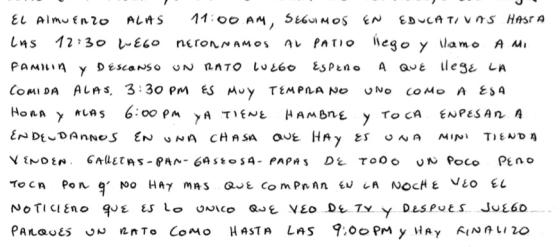 EL AlMUERZO ALAS 11:00 AM, SEGUIMOS EN EDUCATIVAS HASTA
LAS 12:30 LUEGO RETORNAMOS AL PATIO llego y llamo A MI
FAMILIA y DESCANSO UN RATO LUEGO ESPERO A QUE llEGE LA
COMIDA ALAS. 3:30 PM ES MUY TEMPRANO UNO COMO A ESA
HORA y ALAS 6:00 PM yA TIENE HAMBRE y TOCA ENPESAR A
ENDEUDARNOS EN UNA CHASA QUE HAY ES UNA MINI TIENDA
VENDEN. GALLETAS-PAN-GASEOSA-PAPAS DE TODO UN POCO PERO
TOCA POR q' NO HAY MAS QUE COMPRAR EN LA NOCHE VEO EL
NOTICIERO QUE ES LO UNICO QUE VEO DE TV y DESPUES JUEGO
PARQUES UN RATO COMO HASTA LAS 9:00 PM y HAY FINALIZO